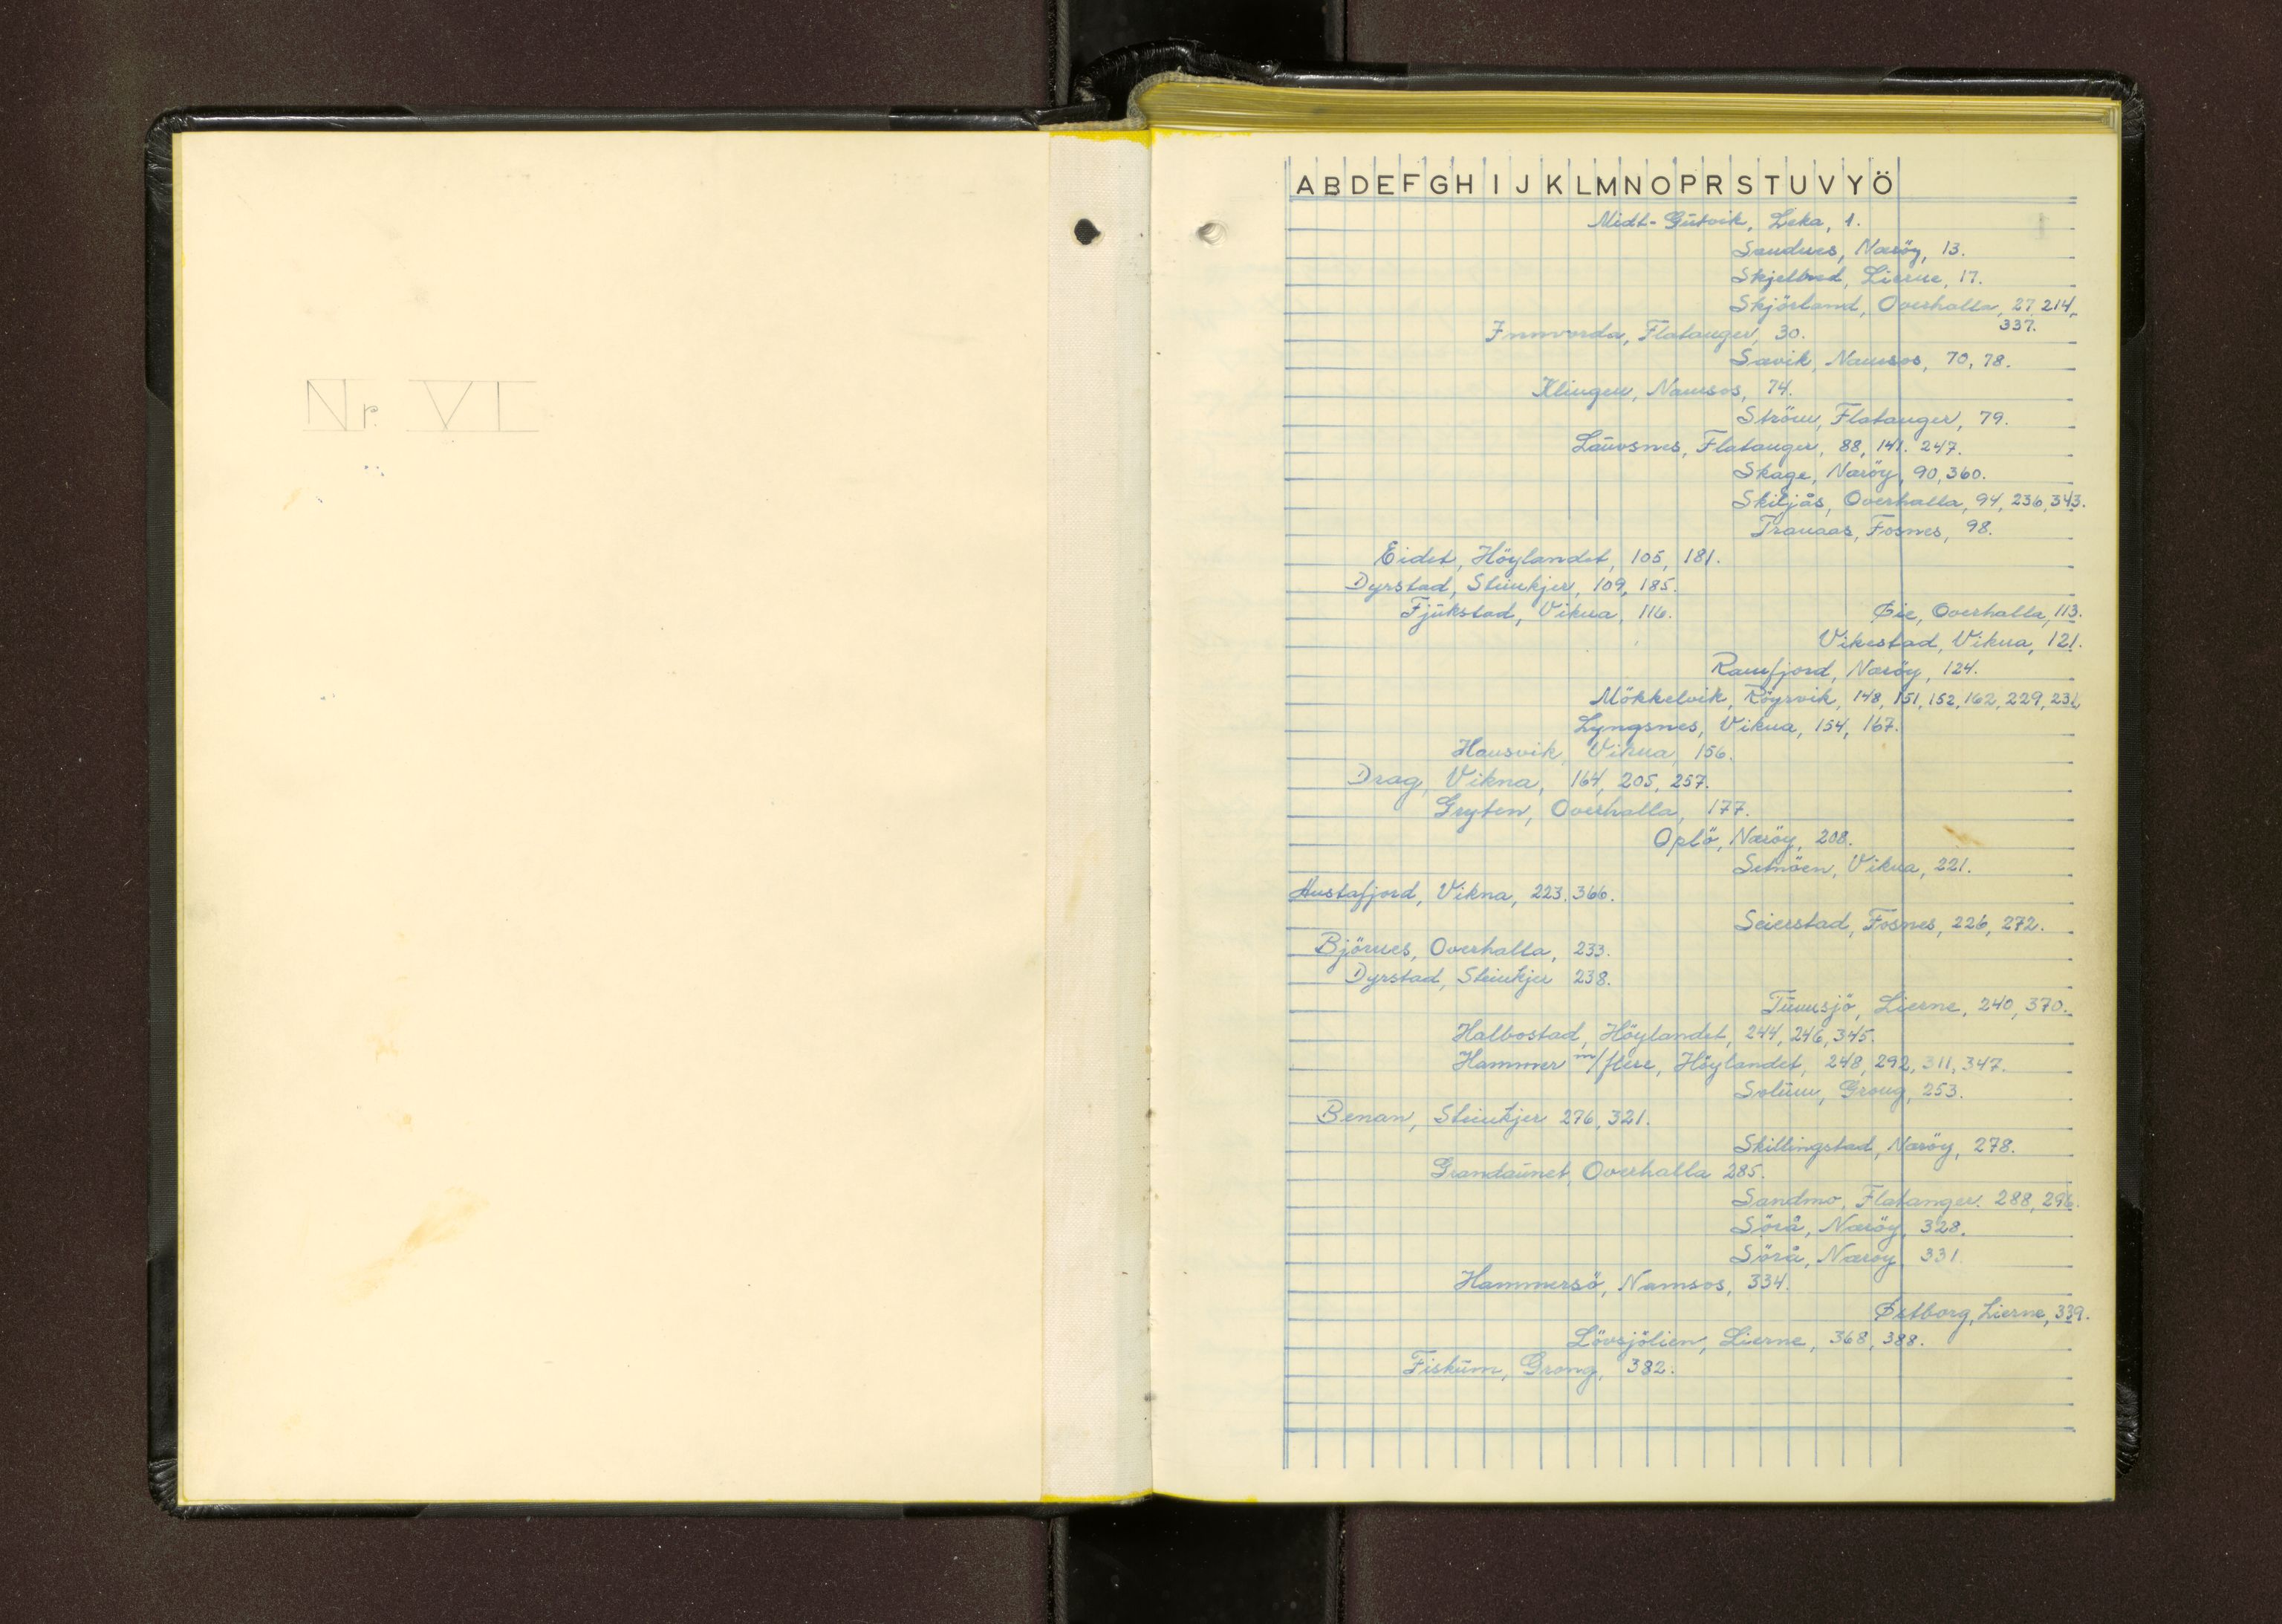 Nr. VI
A B D E F G H I J K L M N O P R S T U V Y Ö
Midt-Gutvik, Leka, 1.
Sandnes, Næröy, 13.
Skjelbred, Lierne, 17.
Skjörland, Overhalla, 27, 214,
337.
Innvorda, Flatanger, 30.
Savik, Namsos, 70, 78.
Klingen, Namsos, 74.
Ström, Flatanger, 79.
Lauvsnes, Flatanger, 88, 141. 247.
Skage, Næröy, 90, 360.
Skiljås, Overhalla, 94, 236, 343.
Tranaas, Fosnes, 98.
Eidet, Höylandet, 105, 181.
Dyrstad, Steinkjer, 109, 185.
Fjukstad, Vikna, 116. Øie, Overhalla, 113.
Vikestad, Vikna, 121.
Ramfjord, Næröy, 124.
Mökkelvik, Röyrvik, 148, 151, 152, 162, 229, 231
Lyngsnes, Vikna, 154, 167.
Hansvik, Vikna, 156.
Drag, Vikna, 164, 205, 257.
Gryten, Overhalla, 177.
Oplö, Næröy, 208.
Setnöen, Vikna, 221.
Austafjord, Vikna, 223. 366.
Seierstad, Fosnes, 226, 272.
Björnes, Overhalla, 233.
Dyrstad, Steinkjer 238.
Tunnsjö, Lierne, 240, 370.
Halbostad, Höylandet, 244, 246, 345.
Hammer m/flere, Höylandet, 248, 292, 311, 347.
Solum, Grong, 253.
Benan, Steinkjer 276, 321.
Skillingstad, Næröy, 278.
Grandaunet, Overhalla 285.
Sandmo, Flatanger. 288, 296.
Sörå, Næröy, 328.
Sörå, Nærøy, 331.
Hammersö, Namsos, 334.
Østborg, Lierne, 339.
Lövsjölien, Lierne, 368, 388.
Fiskum, Grong, 382.